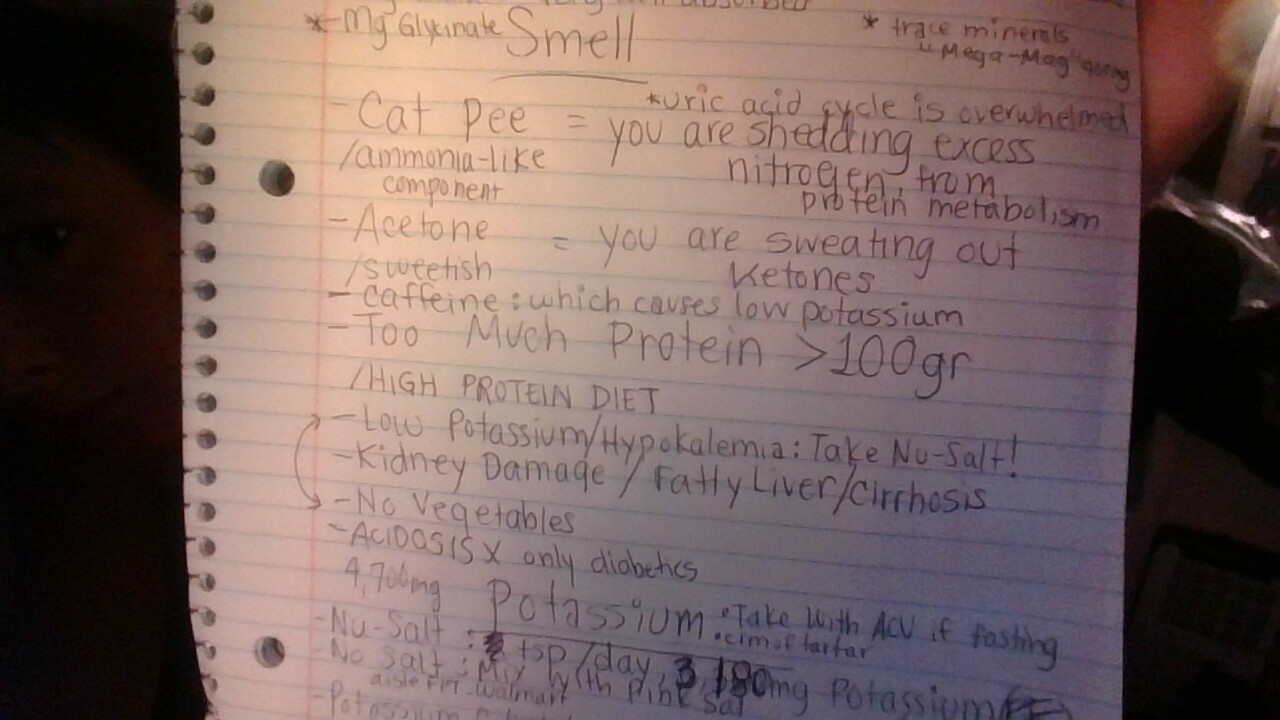 absorbed
* - Mg Glycinate Smell
* trace minerals
"Mega-Mag"
- Cat Pee = you are shedding excess
*uric acid cycle is overwhelmed
/ammonia-like
component
nitrogen, from
protein metabolism
- Acetone = you are sweating out
/sweetish
Ketones
- caffeine: which causes low potassium
- Too Much Protein >100gr
/HIGH PROTEIN DIET
- Low Potassium/Hypokalemia: Take Nu-Salt!
- Kidney Damage / Fatty Liver/Cirrhosis
- No Vegetables
- ACIDOSIS X only diabetics
4,700mg Potassium • Take With ACV if fasting
• crm of tartar
- Nu-Salt : tsp/day,
- No Salt : Mix with Pink Sal
aisle Walmart
Potassium